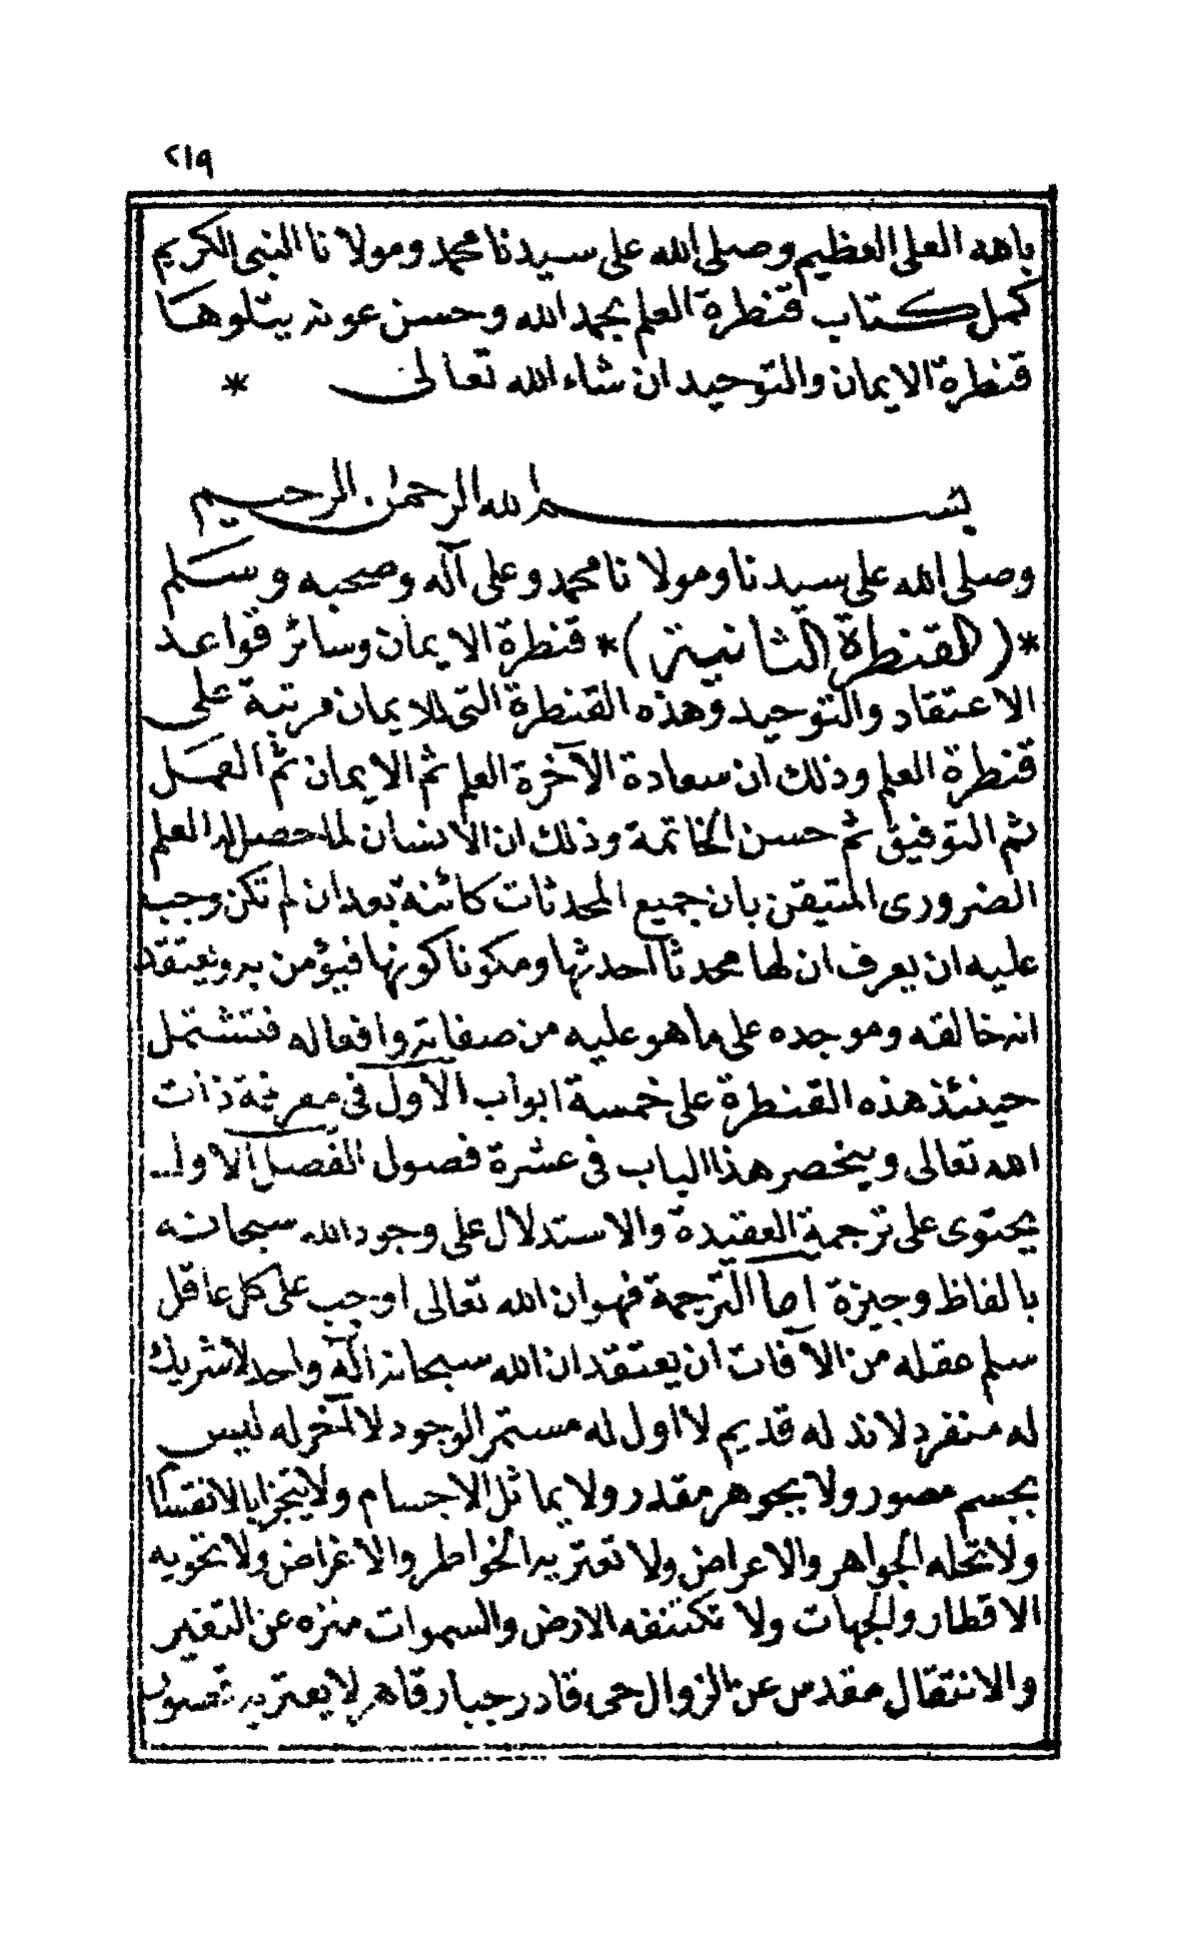 ٢١٩
بالله العلى العظيم وصلى الله على سيدنا محمد ومولانا النبى الكريم
كمل كتاب قنطرة العلم بحمد الله وحسن عونه يتلوها
قنطرة الايمان والتوحيد ان شاء الله تعالى *
بسم الله الرحمن الرحيم
وصلى الله على سيدنا ومولانا محمد وعلى آله وصحبه وسلم
*(القنطرة الثانية)* قنطرة الايمان وسائر قواعد
الاعتقاد والتوحيد وهذه القنطرة التى للايمان مرتبة على
قنطرة العلم وذلك ان سعادة الآخرة العلم ثم الايمان ثم العمل
ثم التوفيق ثم حسن الخاتمة وذلك ان الانسان لما حصل له العلم
الضرورى المتيقن بان جميع المحدثات كائنة بعد ان لم تكن وجب
عليه ان يعرف ان لها محدثا احدثها ومكونا كونها فيؤمن به ويعتقد
انه خالقه وموجده على ما هو عليه من صفاته وافعاله فتشتمل
حينئذ هذه القنطرة على خمسة ابواب الاول فى معرفة ذات
الله تعالى وينحصر هذا الباب فى عشرة فصول الفصل الاول..
يحتوى على ترجمة العقيدة والاستدلال على وجود الله سبحانه
بالفاظ وجيزة اما الترجمة فهو ان الله تعالى اوجب على كل عاقل
سلم عقله من الآفات ان يعتقد ان الله سبحانه اله واحد لا شريك
له منفرد لا ند له قديم لا اول له مستمر الوجود لا آخر له ليس
بجسم مصور ولا بجوهر مقدر ولا يماثل الاجسام ولا يتجزا بالانقسام
ولا تحله الجواهر والاعراض ولا تعتريه الخواطر والاغراض ولا تحويه
الاقطار والجهات ولا تكتنفه الارض والسموات منزه عن التغير
والانتقال مقدس عن الزوال حى قادر جبار قاهر لا يعتريه قصور